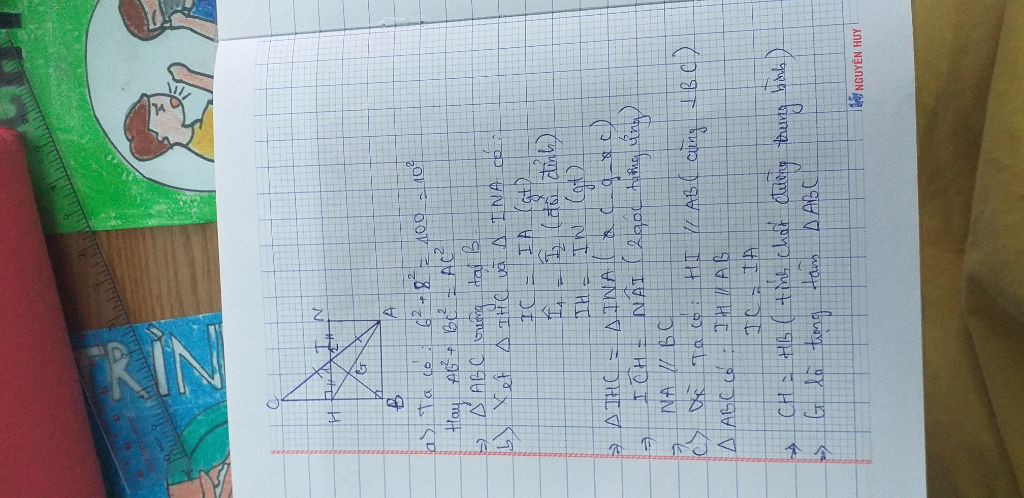 C
H
I
N
1
2
G
B
A
a) Ta có: 6² + 8² = 100 = 10²
Hay AB² + BC² = AC²
⇒ ΔABC vuông tại B.
b) Xét ΔIHC và ΔINA có:
IC = IA (gt)
Î₁ = Î₂ (đối đỉnh)
IH = IN (gt)
⇒ ΔIHC = ΔINA (c_g_c)
⇒ IĈH = NÂI (2 góc tương ứng)
⇒ NA // BC
c) Ta có: HI // AB (cùng ⊥ BC)
ΔABC có: IH // AB
IC = IA
⇒ CH = HB (tính chất đường trung bình)
⇒ G là trọng tâm ΔABC
NGUYÊN HUY
TRÌN